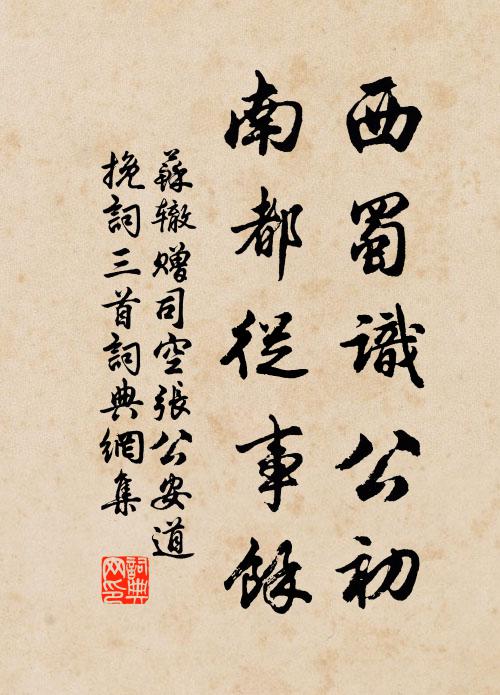 西蜀識公初
南都從事餘
蘇轍贈司空張公安道
挽詞三首詞典網集
詞典
网印